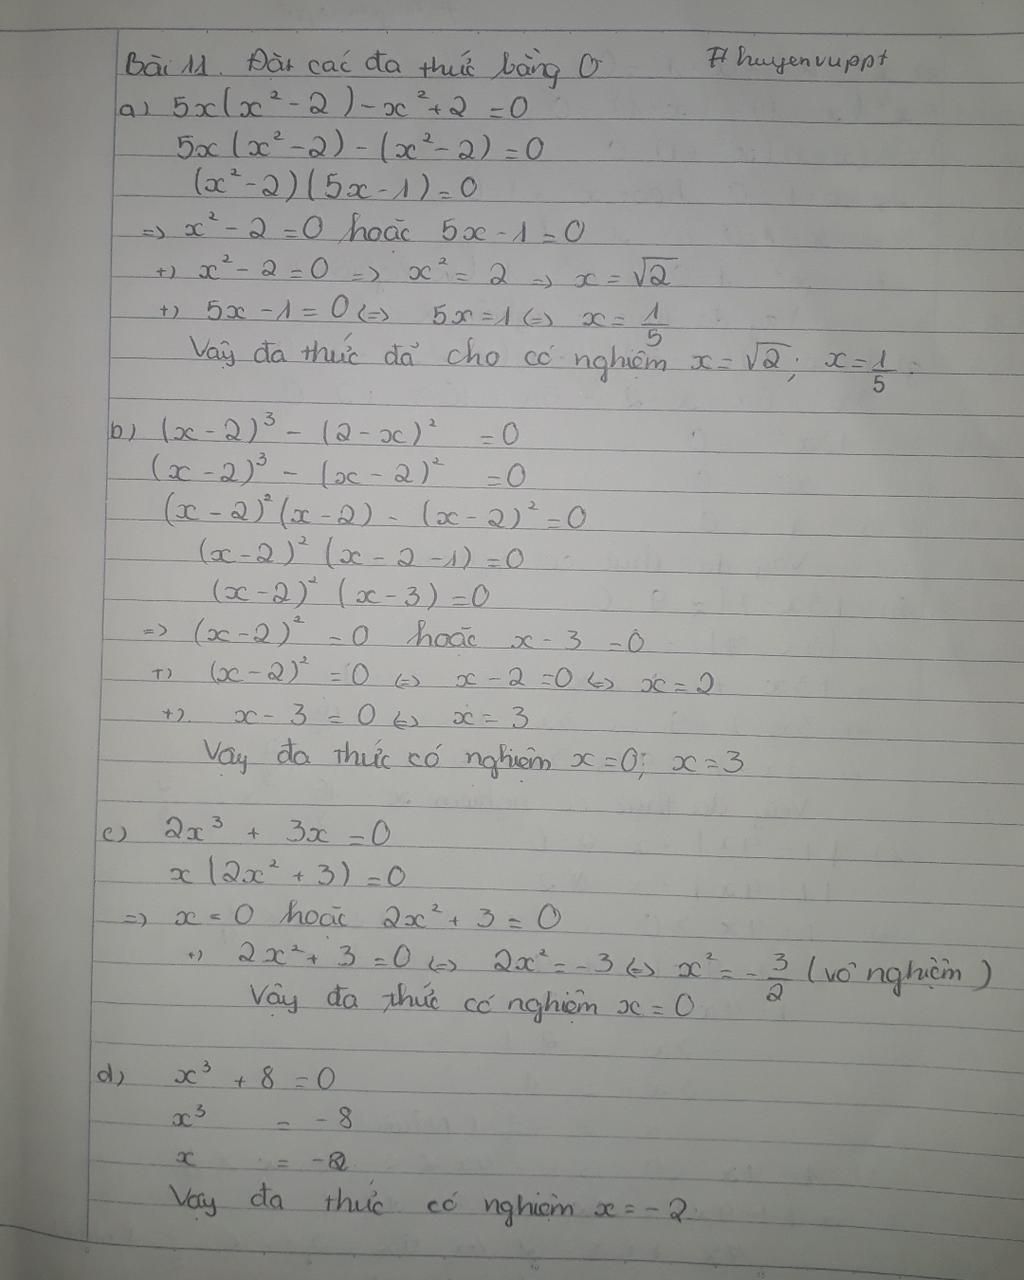 Bài 11. Đặt các đa thức bằng 0 # huyenvuppt
a) 5x(x² - 2) - x² + 2 = 0
5x(x² - 2) - (x² - 2) = 0
(x² - 2)(5x - 1) = 0
=> x² - 2 = 0 hoặc 5x - 1 = 0
+) x² - 2 = 0 => x² = 2 => x = √2
+) 5x - 1 = 0 <=> 5x = 1 <=> x = 1/5
Vậy đa thức đã cho có nghiệm x = √2; x = 1/5.
b) (x - 2)³ - (2 - x)² = 0
(x - 2)³ - (x - 2)² = 0
(x - 2)²(x - 2) - (x - 2)² = 0
(x - 2)² (x - 2 - 1) = 0
(x - 2)² (x - 3) = 0
=> (x - 2)² = 0 hoặc x - 3 = 0
+) (x - 2)² = 0 <=> x - 2 = 0 <=> x = 2
+) x - 3 = 0 <=> x = 3
Vậy đa thức có nghiệm x = 0; x = 3
c) 2x³ + 3x = 0
x(2x² + 3) = 0
=> x = 0 hoặc 2x² + 3 = 0
+) 2x² + 3 = 0 <=> 2x² = -3 <=> x² = -3/2 (vô nghiệm)
Vậy đa thức có nghiệm x = 0
d) x³ + 8 = 0
x³ = -8
x = -2
Vậy đa thức có nghiệm x = -2